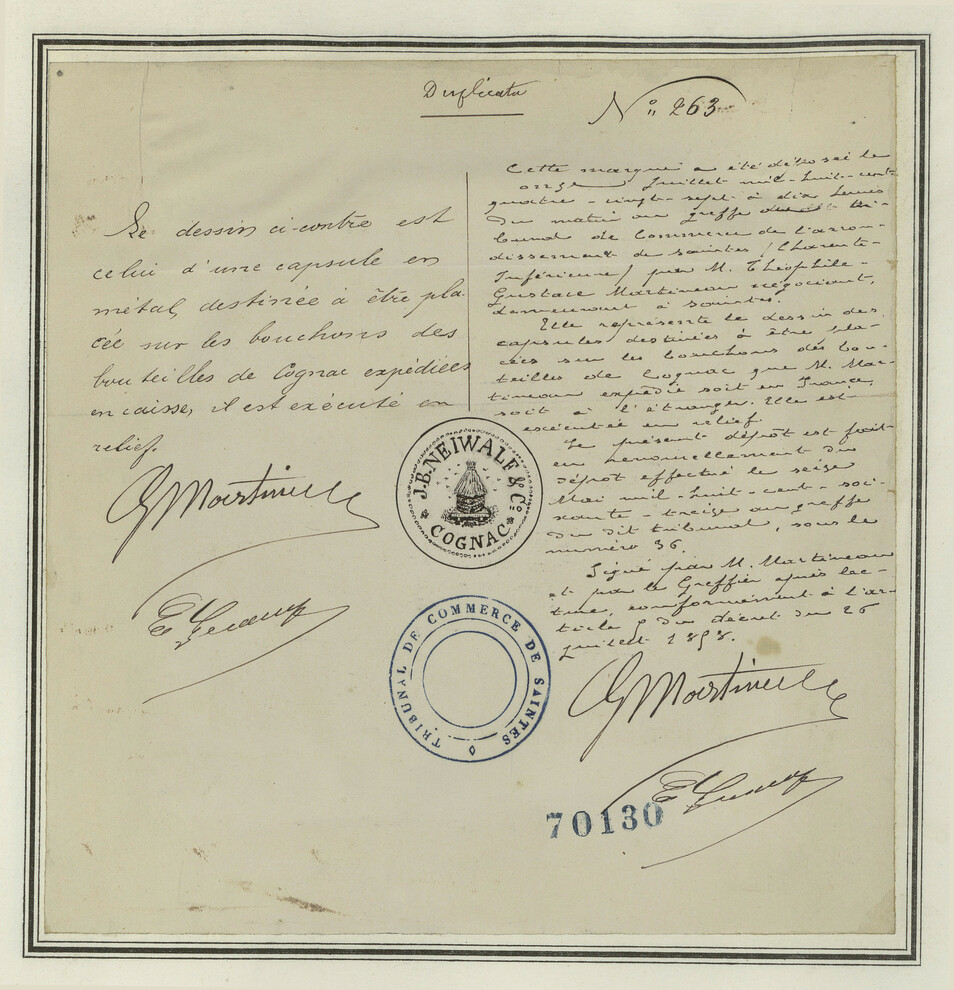 Duplicata
N° 263
Le dessin ci-contre est
celui d'une capsule en
métal, destinée à être pla-
cée sur les bouchons des
bouteilles de Cognac expédiées
en caisse, il est exécuté en
relief.
G Martineau
J.B. NEIWALE & Co
COGNAC
TRIBUNAL DE COMMERCE DE SAINTES
Cette marque a été déposée le
onze Juillet mil-huit-cent
quatre-vingt-sept à dix heures
du matin au greffe du tri-
bunal de Commerce de l'arron-
dissement de Saintes (Charente-
Inférieure) par M. Théophile-
Gustave Martineau négociant,
demeurant à Saintes.
Elle représente le dessin des
capsules destinées à être pla-
cées sur les bouchons des bou-
teilles de Cognac que M. Mar-
tineau expédie soit en France,
soit à l'étranger. Elle est
exécutée en relief.
Le présent dépôt est fait
en renouvellement du
dépôt effectué le seize
Mai mil-huit-cent-soi-
xante-treize au greffe
du dit tribunal, sous le
numéro 36.
Signé par M. Martineau
et par le Greffier après lec-
ture, conformément à l'ar-
ticle 5 du décret du 26
juillet 1858.
G Martineau
70130